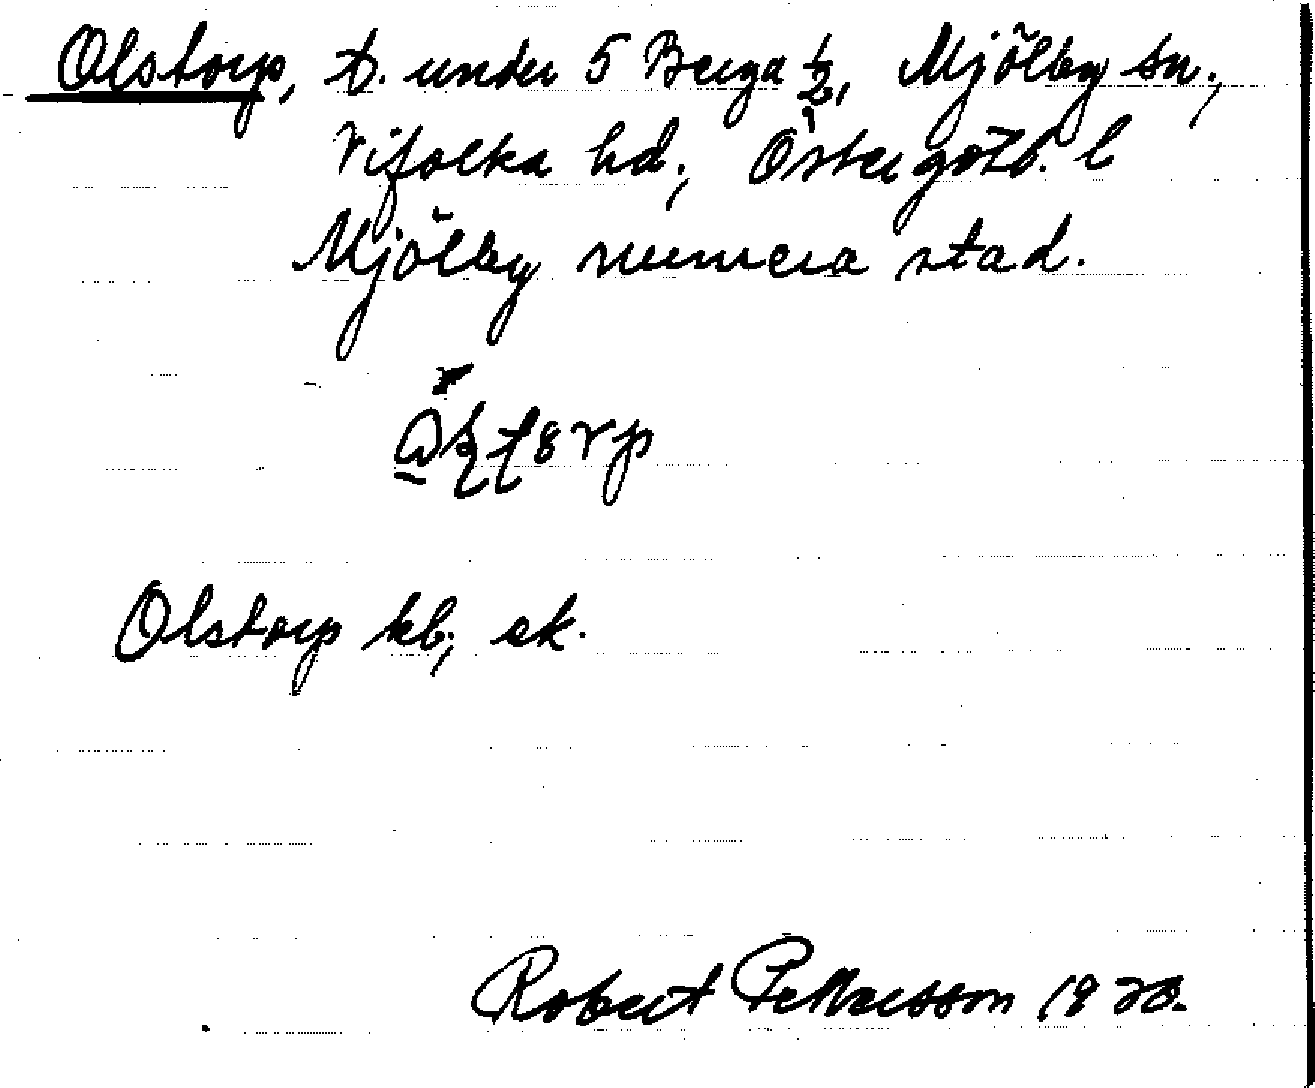 Olstorp, t. under 5 Berga ½, Mjölby sn.,
Vifolka hd.; Östergötl. l
Mjölby numera stad.
Olstorp kb, ek.
Robert Pettersson 1920.